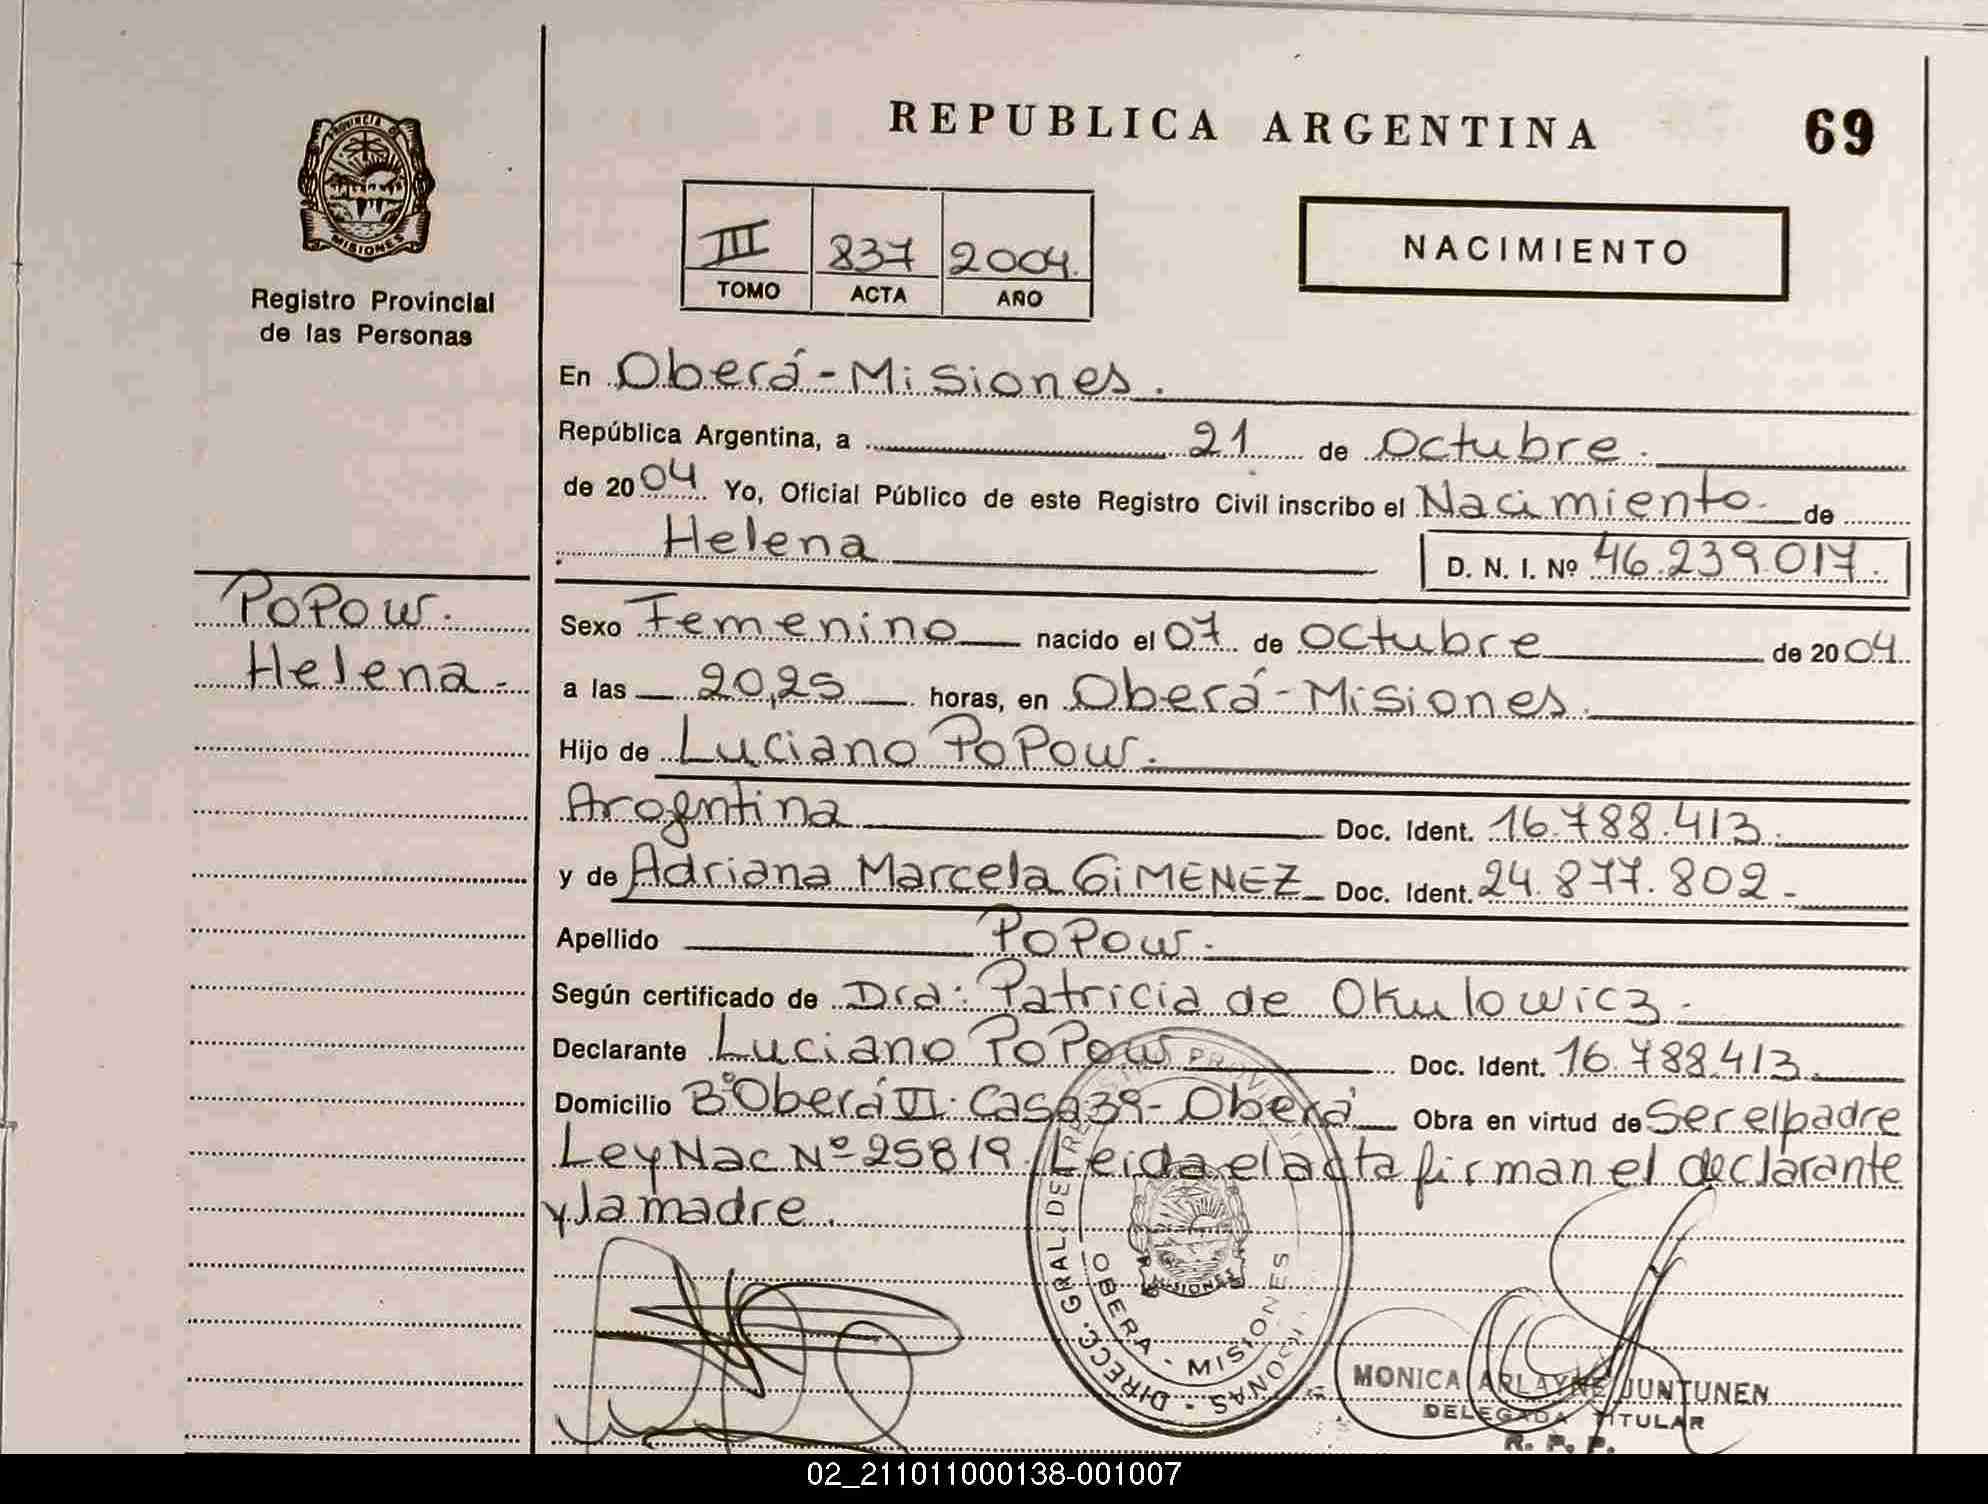 REPUBLICA ARGENTINA
69
PROVINCIA DE
MISIONES
Registro Provincial
de las Personas
III 837 2004.
TOMO ACTA AÑO
NACIMIENTO
En Oberá-Misiones.
República Argentina, a 21 de Octubre.
de 2004 Yo, Oficial Público de este Registro Civil inscribo el Nacimiento de
Helena D. N. I. Nº 46.239.017.
POPOW.
Helena-
Sexo Femenino nacido el 07 de octubre de 2004
a las 20,25 horas, en Oberá-Misiones.
Hijo de Luciano POPOW.
Argentina Doc. Ident. 16.788.413.
y de Adriana Marcela GIMENEZ Doc. Ident. 24.877.802-
Apellido POPOW.
Según certificado de Dra: Patricia de Okulowicz.
Declarante Luciano POPOW Doc. Ident. 16.788413.
Domicilio Bº Oberá VI. Casa 39-Oberá Obra en virtud de Ser el padre
Ley Nac Nº 25819. Leida el acta firman el declarante
y la madre.
DIRECC. GRAL. DE
OBERA - MISIONES
MISIONES
MONICA ARLAYNE JUNTUNEN
DELEGADA TITULAR
R. P. P.
02_211011000138-001007